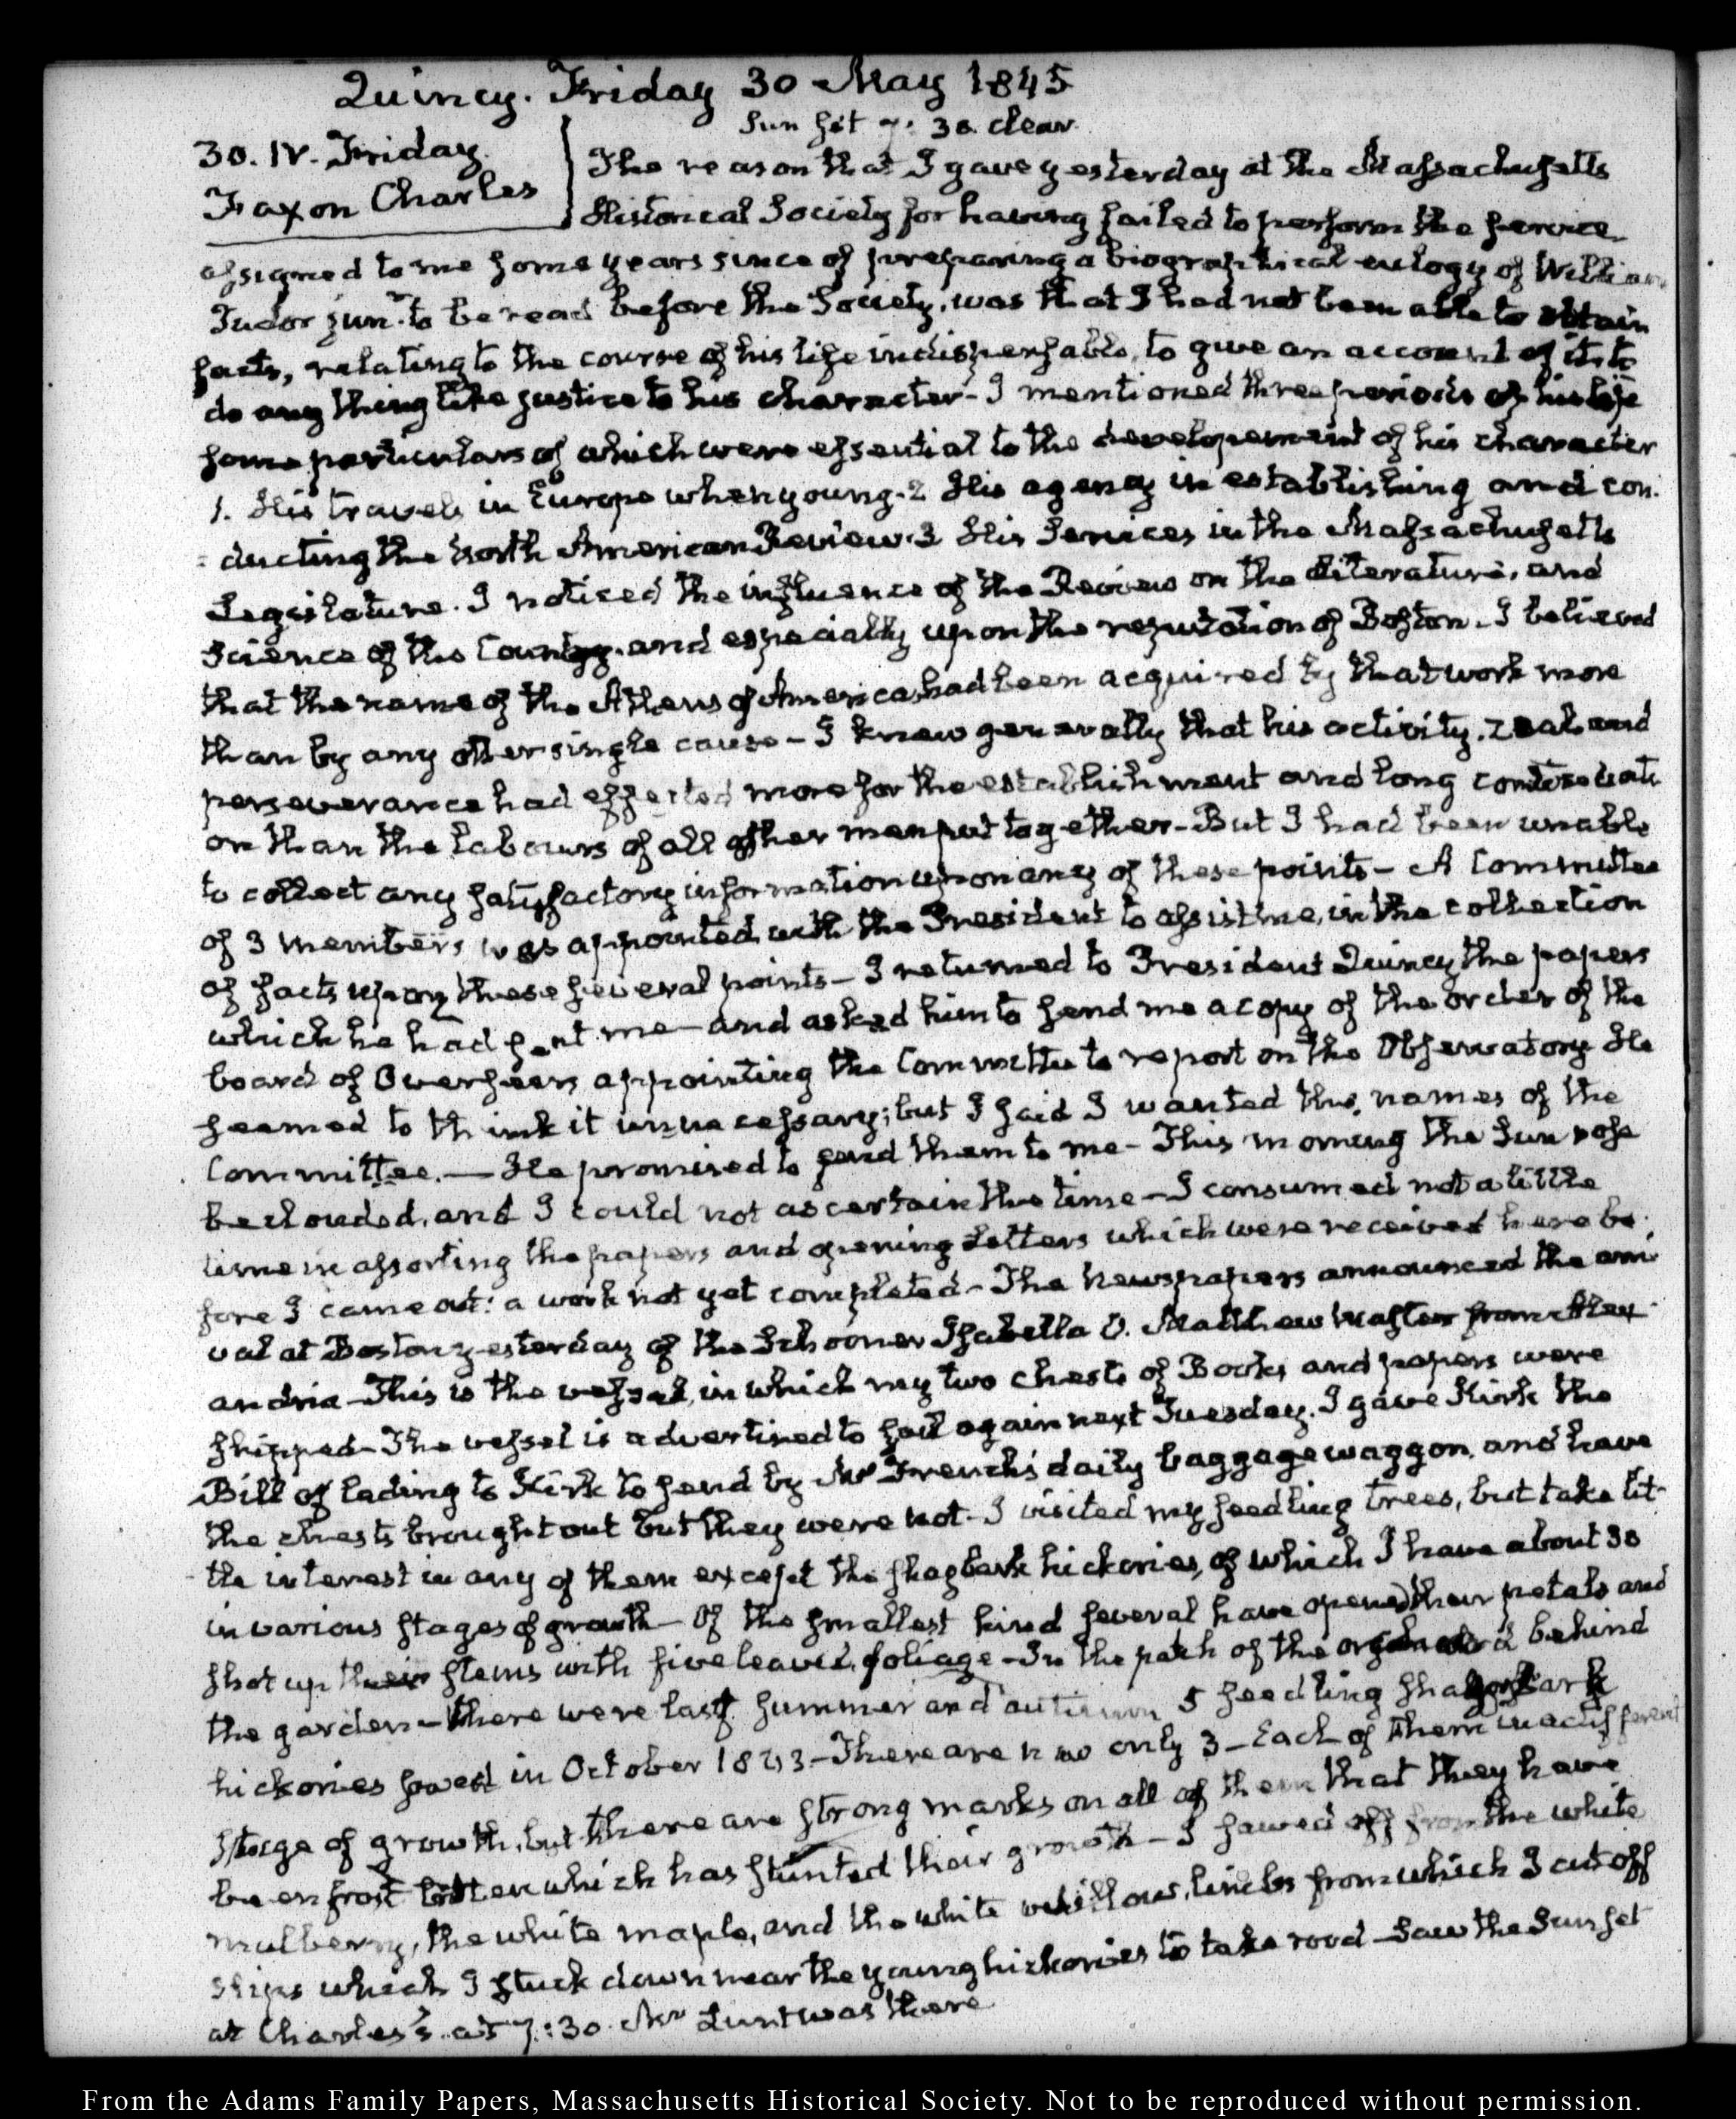 Quincy. Friday 30 May 1845
Sun set 7: 30. clear.
30. IV. Friday.
Faxon Charles
The reason that I gave yesterday at the Massachusetts
Historical Society for having failed to perform the service
assigned to me some years since of preparing a biographical eulogy of William
Tudor junr. to be read before the Society, was that I had not been able to obtain
facts, relating to the course of his life indispensable, to give an account of it, to
do any thing like justice to his character - I mentioned three periods of his life
some particulars of which were essential to the developement of his character
1. His travels in Europe when young. 2 His agency in establishing and con-
ducting the North American Review. 3 His Services in the Massachusetts
Legislature. I noticed the influence of the Review on the Literature, and
Science of the Country, and especially upon the reputation of Boston. I believed
that the name of the Athens of America had been acquired by that work more
than by any other single cause - I knew generally that his activity, zeal and
perseverance had effected more for the establishment and long
on than the labours of all other men put together - But I had been unable
to collect any satisfactory information upon any of these points - A Committee
of 3 members was appointed with the President to assist me, in the collection
of facts upon these several points - I returned to President Quincy the papers
which he had sent me - and asked him to send me a copy of the order of the
board of Overseers appointing the Committee to report on the Observatory He
seemed to think it unnecessary; but I said I wanted the names of the
Committee. — He promised to send them to me - This morning the Sun rose
beclouded, and I could not ascertain the time - I consumed not a little
time in assorting the papers and opening Letters which were received here be-
fore I came out: a work not yet completed - The Newspapers announced the arri-
val at Boston yesterday of the Schooner Isabella O. Matthew Master from Alex-
andria - This is the vessel, in which my two chests of Books and papers were
shipped - The vessel is advertised to sail again next Tuesday. I gave Kirk the
Bill of lading to Kirk to send by Mr French's daily baggage waggon, and have
the chests brought out but they were not - I visited my seedling trees, but take lit-
tle interest in any of them except the shagbark hickories, of which I have about 30
in various stages of growth - Of the smallest kind several have opened their petals and
shot up their stems with five leaved foliage - In the path of the orchard behind
the garden - there were last summer and autumn 5 seedling shagbark
hickories sowed in October 1843 - There are now only 3 - Each of them in a different
stage of growth, but there are strong marks on all of them that they have
been frost bitten which has stunted their growth - I sawed off from the white
mulberry, the white maple, and the white willow, limbs from which I cut off
slips which I stuck down near the young hickories to take rood - Saw the Sun set
at Charles's at 7:30. Mr Lunt was there
From the Adams Family Papers, Massachusetts Historical Society. Not to be reproduced without permission.